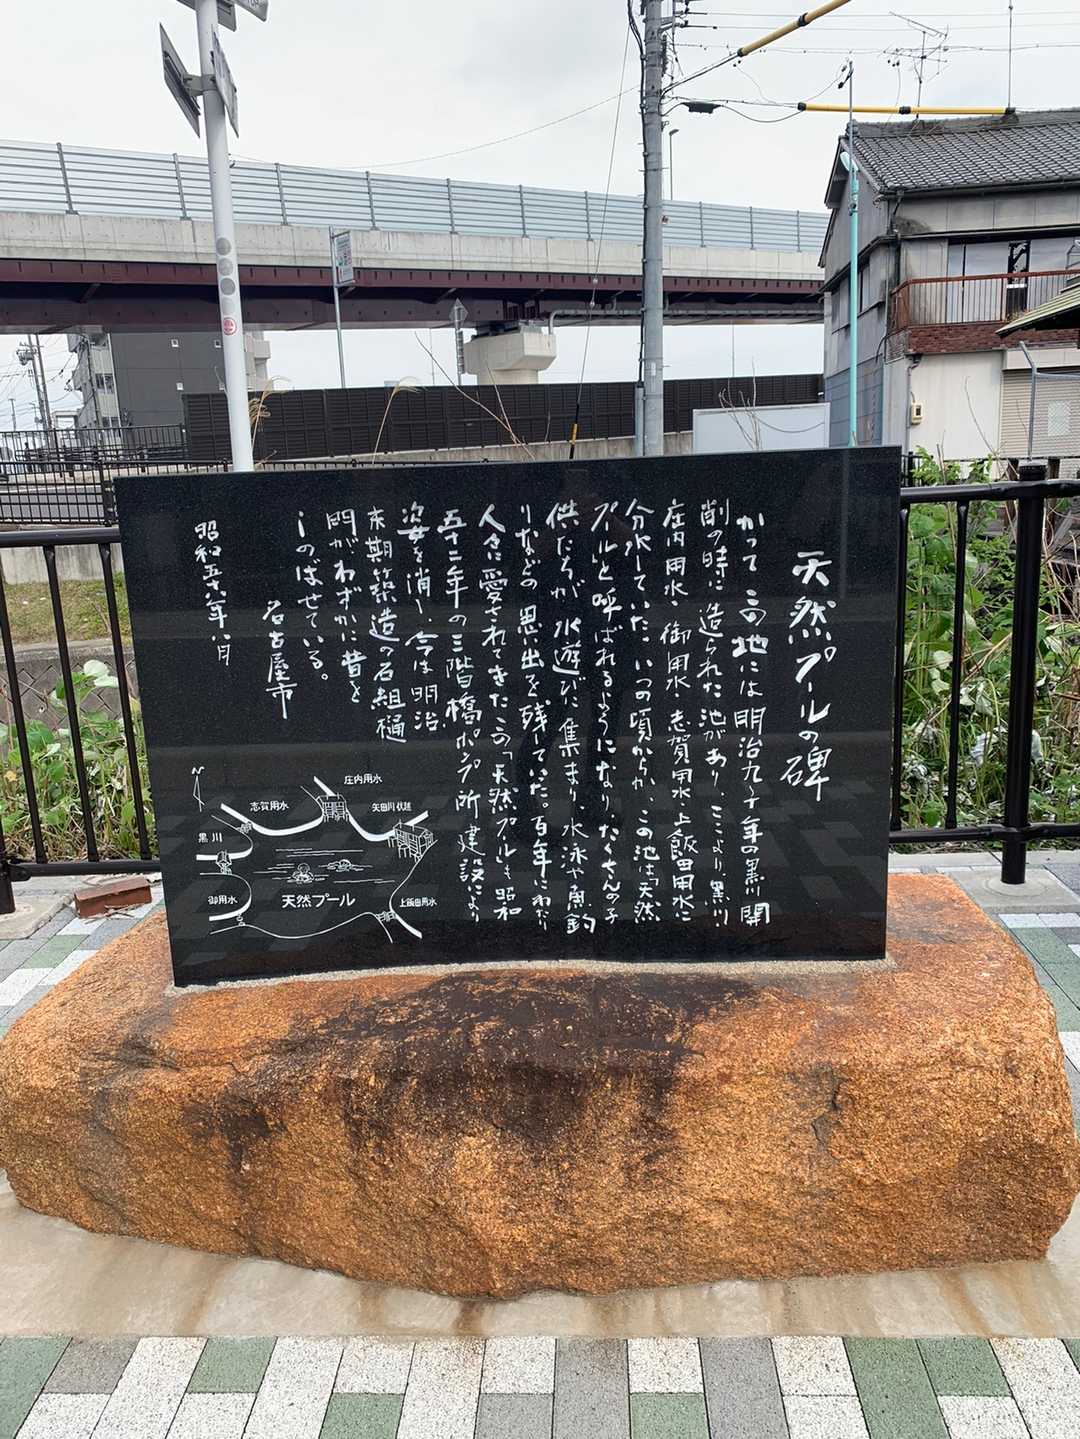 天然プールの碑
かつてこの地には明治九~十年の黒川開
削の時に造られた池があり、ここより黒川・
庄内用水・御用水・志賀用水・上飯田用水に
分水していた。いつの頃からか、この池は「天然
プール」と呼ばれるようになり、たくさんの子
供たちが水遊びに集まり、水泳や魚釣
りなどの思い出を残していた。百年にわたり
人々に愛されてきたこの「天然プール」も昭和
五十二年の三階橋ポンプ所建設により
姿を消し、今は明治
末期築造の石組樋
門がわずかに昔を
しのばせている。
名古屋市
昭和五十六年八月
N
庄内用水
志賀用水
矢田川伏越
黒川
御用水
天然プール
上飯田用水